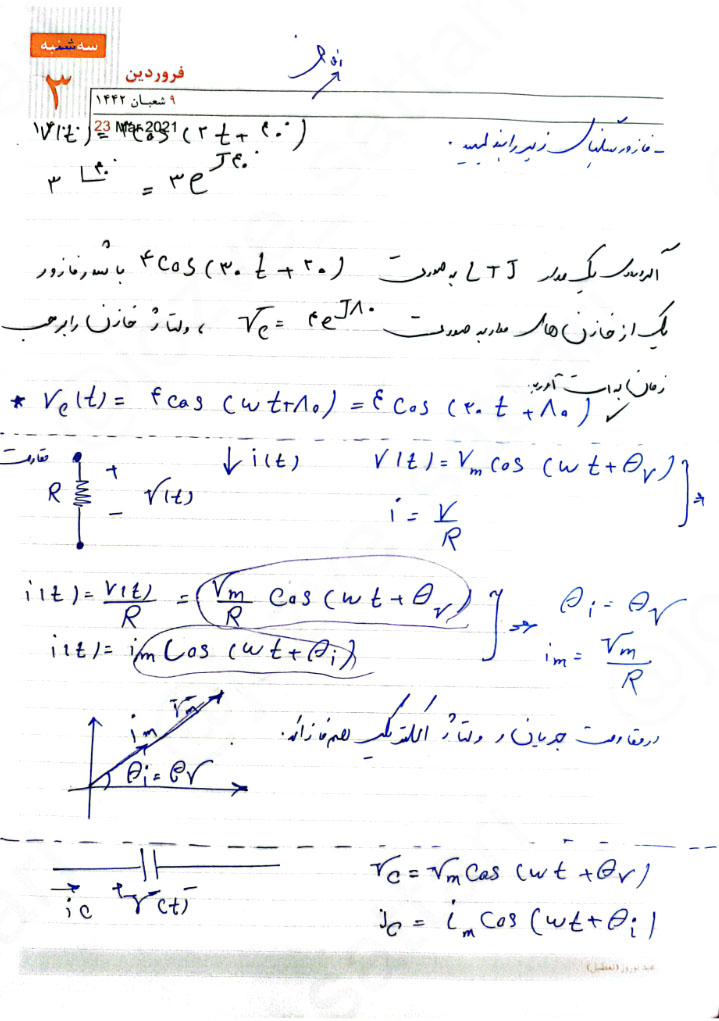 سه‌شنبه
۳
فروردین
۹ شعبان ۱۴۴۲
23 Mar 2021
- فازور سیگنال زیر را بنویسید.
V(t) = ۳cos(۲t + ۴۰)
۳∟۴۰ = ۳e^J۴۰
اگر ورودی یک مدار LTI به صورت ۴cos(۳۰t + ۲۰) باشد و فازور
یک از خازن های مدار به صورت Vc = ۴e^J۸۰ ، ولتاژ خازن را برحسب
زمان بدست آورید.
* Vc(t) = ۴cos(ωt+۸۰) = ۴cos(۳۰t+۸۰) ✓
مقاومت
R + - V(t) ↓i(t) V(t) = Vm cos(ωt+θv)
i = V/R
i(t) = V(t)/R = Vm/R cos(ωt+θv) ⇒ θi = θv
i(t) = im cos(ωt+θi) im = Vm/R
در مقاومت جریان و ولتاژ الکتریکی هم فازاند.
im Vm
θi = θv
ic + V(t) - Vc = Vm cos(ωt+θv)
ic = im cos(ωt+θi)
عید نوروز (تعطیل)